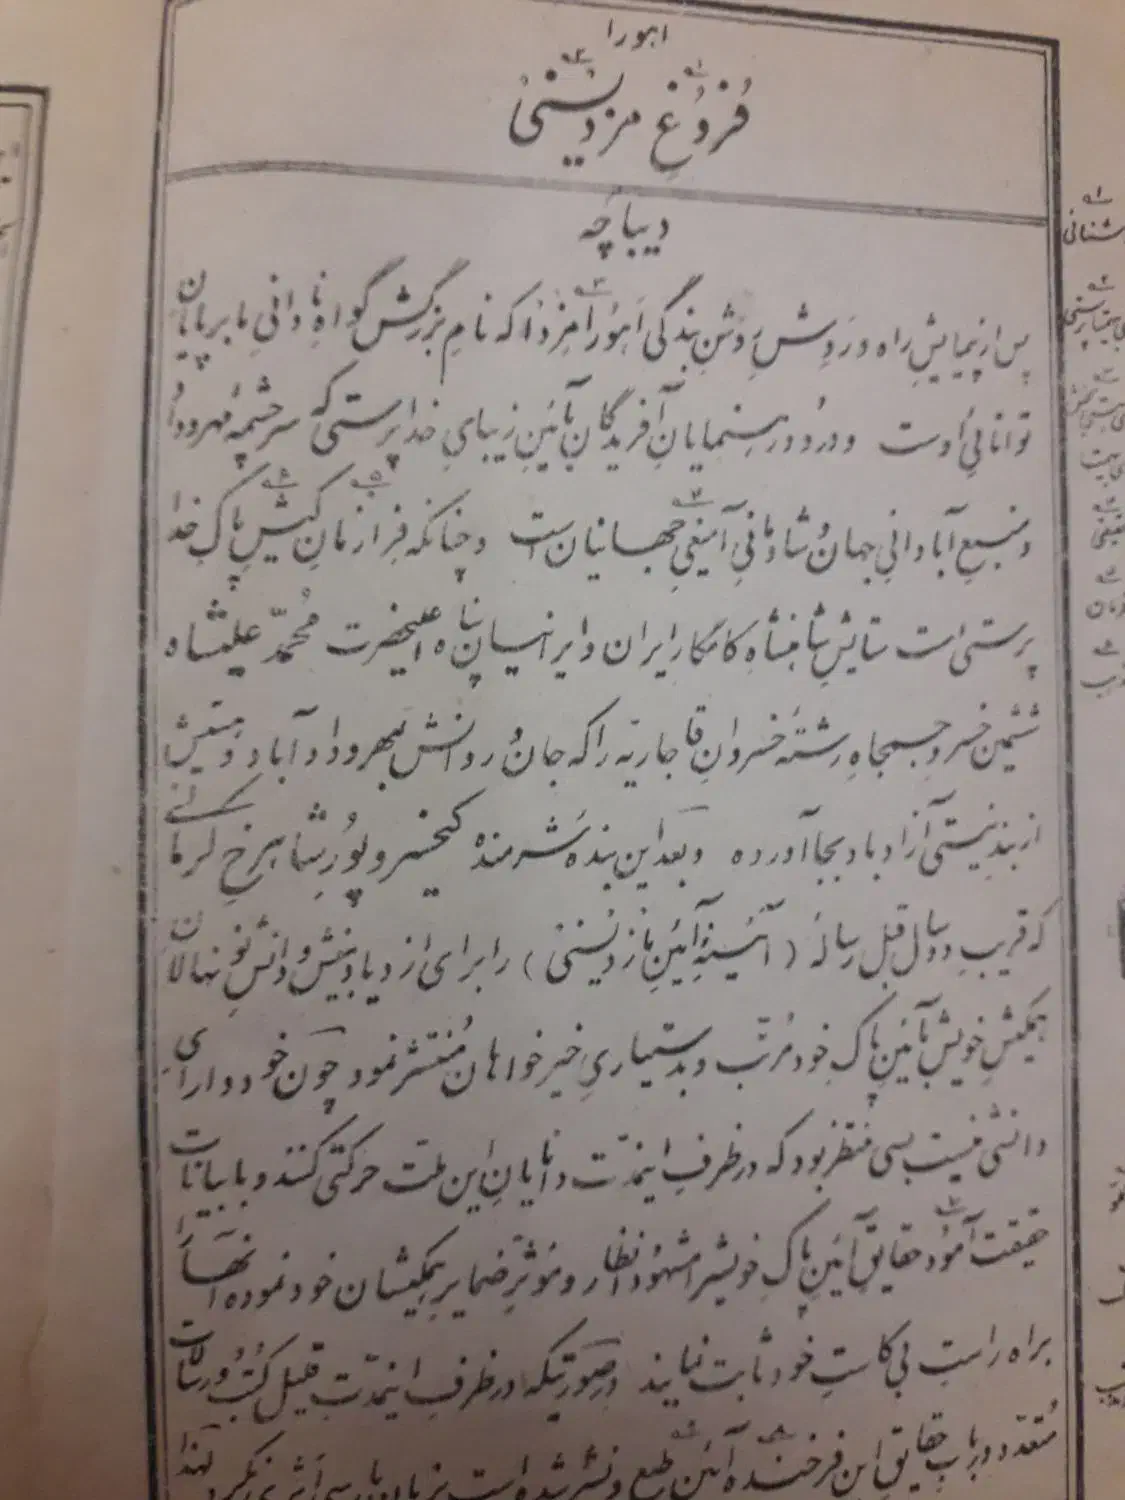 اهورا
فُروُغِ مزدیَسنی
دیباچه
پس از نمایشِ راه و رَوِشِ رَوِشنِ بندگی اَهُورا مَزدا که نامِ بزرگش گواهِ دانائیِ ما بر پایانِ
توانائیِ اُوست و درود و رهنمایانِ آفریدگان بآئینِ زیبایِ خداپرستی که سرچشمهٔ مهر و داد
و منبعِ آبادانیِ جهان و شادمانیِ آمیغیِ جهانیان است و چنانکه فرازمانِ کیشِ پاکِ خدا
پرستی است ستایشِ شاهنشاهِ کامگار ایران و ایرانیان پناه اعلیحضرت محمّد علیشاه
ششمین خسرو جمجاهِ رشتهٔ خسروانِ قاجاریّه را که جان و روانش بمهر و داد آباد و
از بندِ نیستی آزاد باد بجا آورده و بعد این بنده شرمنده کیخسرو پُورِ شاهرخ کرمانی
که قریبِ دو سال قبل رسالهٔ (آئینهٔ آئینِ مازدیسنی) را برای ازدیاد بینش و دانشِ نونهالانِ
همکیشِ خویش بآئینِ پاک خود مُرتّب و بدستیاریِ خیرخواهان مُنتشر نمود چون خود دارایِ
دانشی نیست بسی منتظر بود که در ظرف اینمدّت دانایانِ این ملّت حرکتی کنند و با بیانات
حقیقت آمود حقایقِ آئینِ پاکِ خویشرا مشهودِ انظار و مؤثرِ ضمایرِ همکیشان خود نموده آنها را
براه راستِ بی کاستِ خود ثابت نمایند در صورتیکه در ظرفِ اینمدّت قبیل کتُب و رسالات
مُتعدّد در باب حقایقِ این فرخنده آئین طبع و نشر شده است بزبان پارسی اثری نکرد لهذا